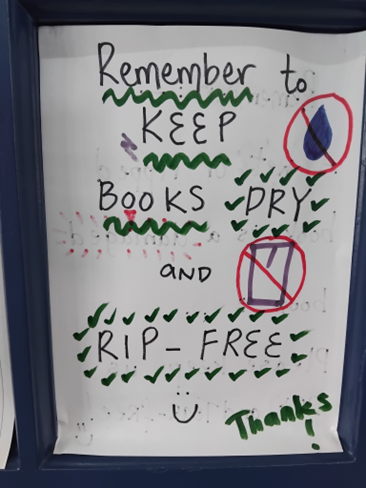 Remember to
KEEP
BOOKS DRY
AND
RIP- FREE
Thanks!